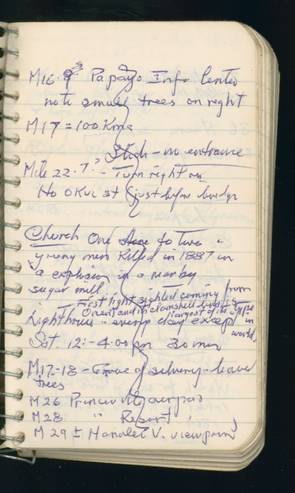 M16.9 Papayo Info Center
note small trees on right
M17 = 100 Kms
- no entrance
Mile 22.7 - Turn right on
No Okui st (just before bridge
Church One to two
young men killed in 1887 in
a explosion in a nearby
sugar mill.
First light sighted coming from
Orient and its clamshell
largest of its type
in world
Lighthouse - every day except
Sat 12:-4:00 pm 30 min
M17-18 - Grove of silvery-leave
trees
M26 Princeville airport
M28 " Resort
M29 ± Hanalei V. viewpoint